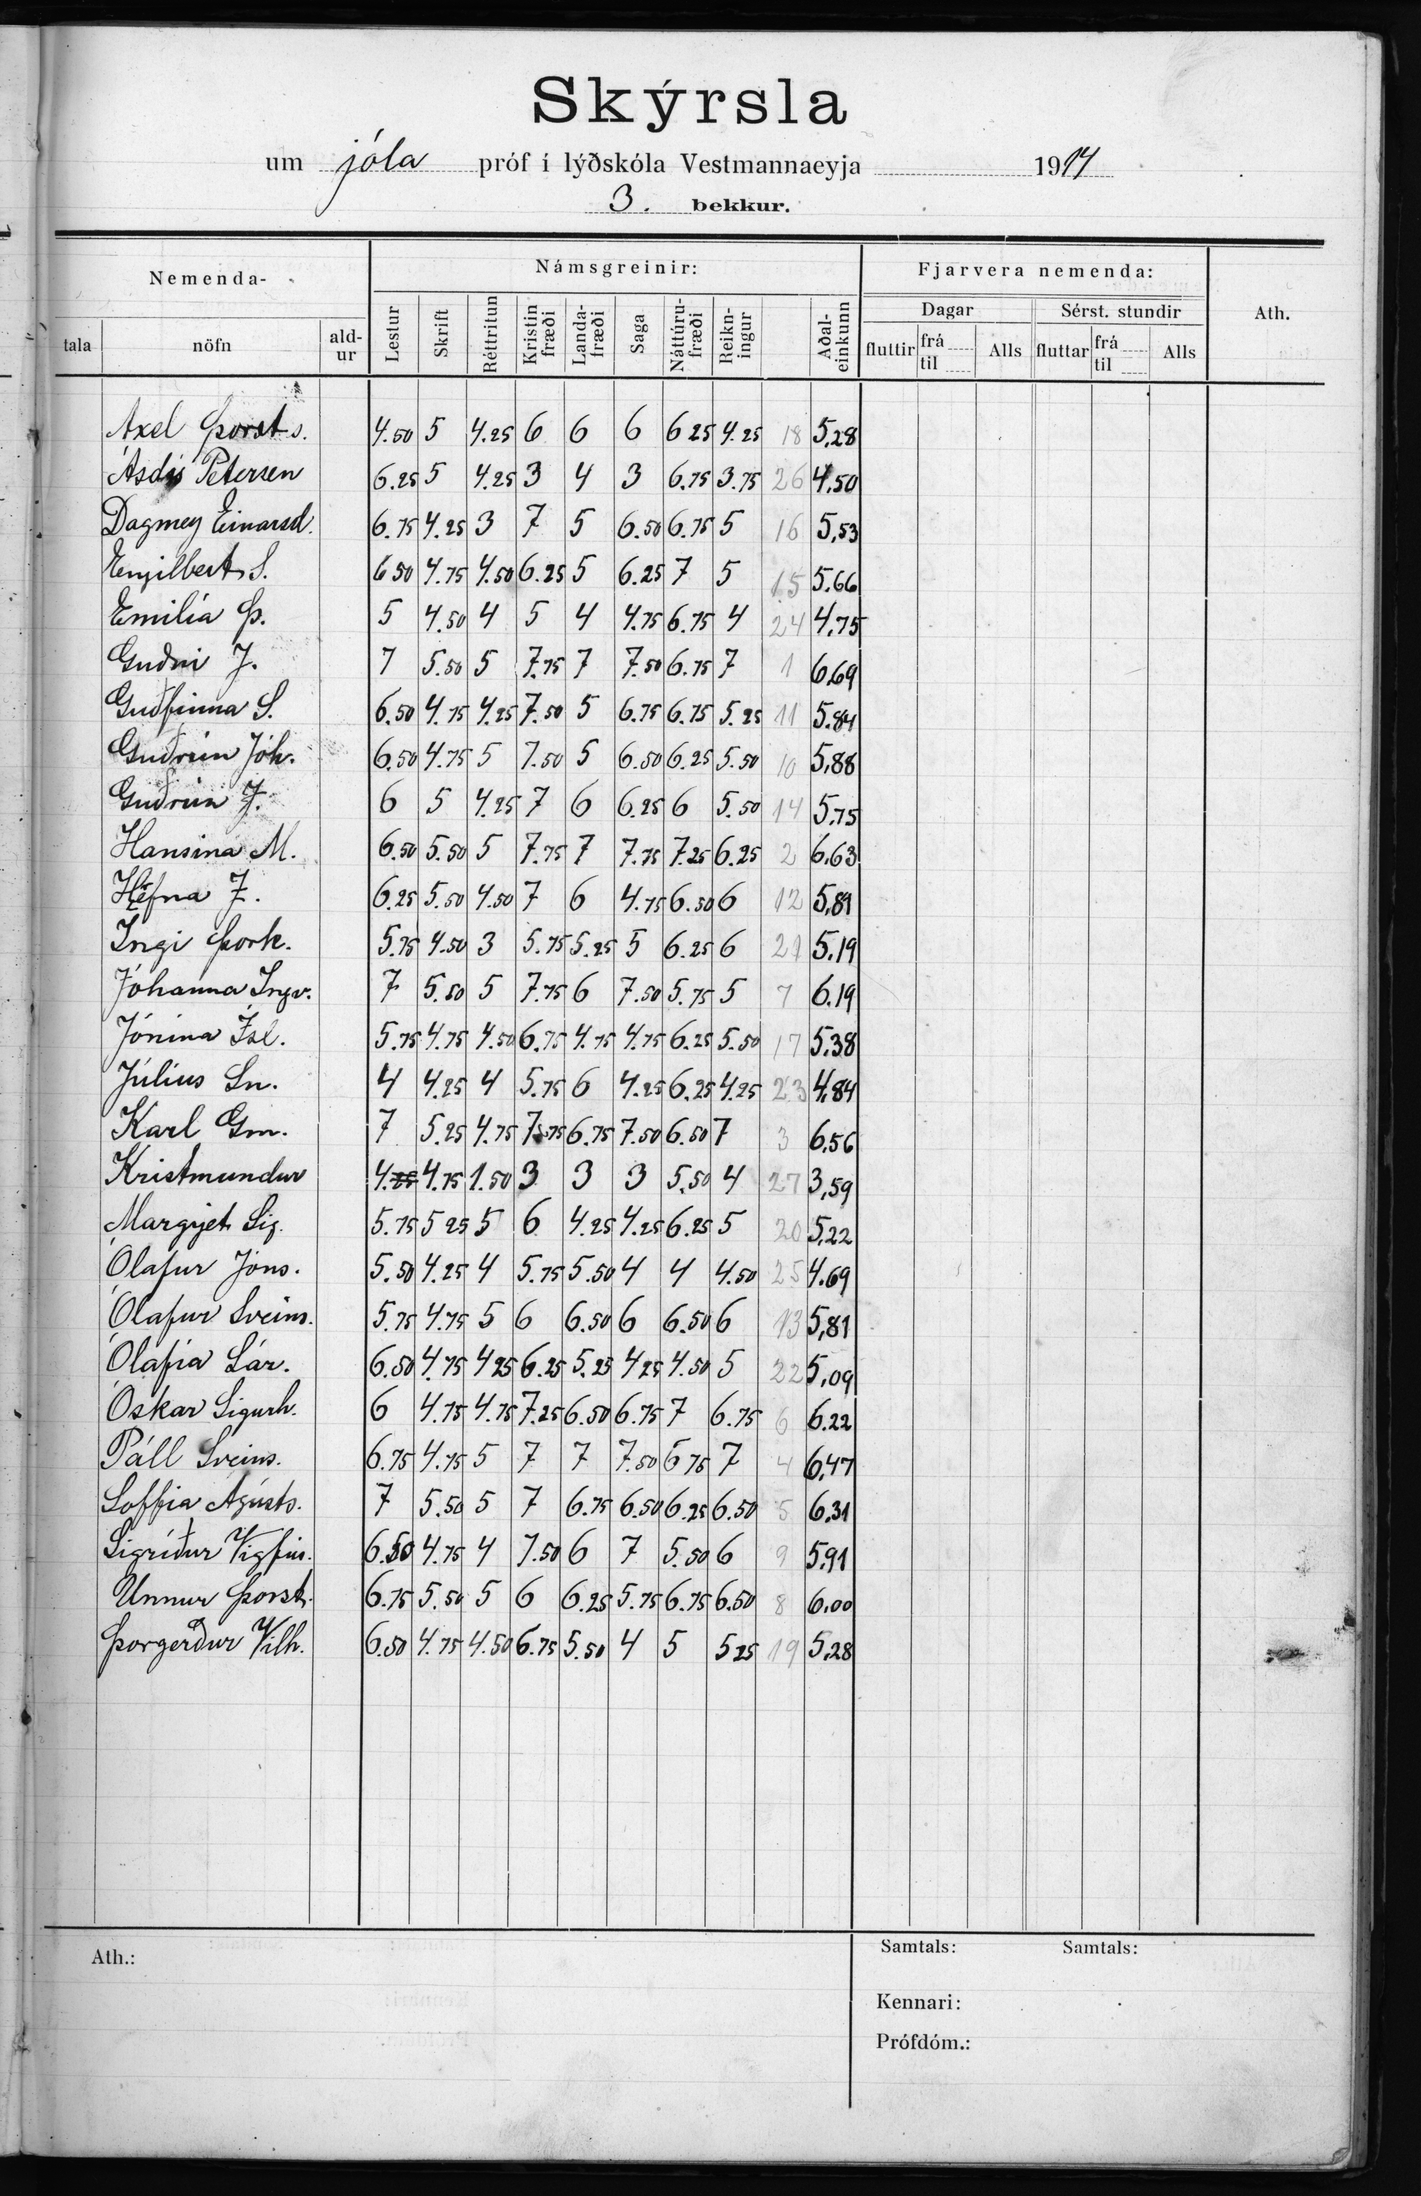 Skýrsla
um jóla próf í lýðskóla Vestmannaeyja 1914
3. bekkur.
Nemenda- Námsgreinir: Fjarvera nemenda: Ath.
tala nöfn ald-ur Lestur Skrift Réttritun Kristin fræði Landa-fræði Saga Náttúru-fræði Reikn-ingur Aðal-einkunn Dagar Sérst. stundir
fluttir frá til Alls fluttar frá til Alls
Axel Þorsts. 4.50 5 4.25 6 6 6 6 25 4.25 18 5,28
Ásdís Petersen 6.25 5 4.25 3 4 3 6.75 3.75 26 4,50
Dagmey Einarsd. 6.75 4.25 3 7 5 6.50 6.75 5 16 5,53
Engilbert S. 6 50 4.75 4.50 6.25 5 6.25 7 5 15 5,66
Emilía Þ. 5 4.50 4 5 4 4.75 6.75 4 24 4,75
Guðni J. 7 5.50 5 7.75 7 7.50 6.75 7 1 6,69
Guðfinna S. 6.50 4.75 4.25 7.50 5 6.75 6.75 5.25 11 5.84
Guðrún Jóh. 6.50 4.75 5 7.50 5 6.50 6.25 5.50 10 5,88
Guðrún J. 6 5 4.25 7 6 6.25 6 5.50 14 5,75
Hansína M. 6.50 5.50 5 7.75 7 7.75 7.25 6.25 2 6,63
Hefna J. 6.25 5.50 4.50 7 6 4.75 6.50 6 12 5,81
Ingi Þork. 5.75 4.50 3 5.75 5.25 5 6.25 6 21 5,19
Jóhanna Ingv. 7 5.50 5 7.75 6 7.50 5.75 5 7 6,19
Jónína Ísl. 5.75 4.75 4.50 6.75 4.75 4.75 6.25 5.50 17 5,38
Júlíus Sn. 4 4.25 4 5.75 6 4.25 6.25 4.25 23 4,84
Karl Gm. 7 5.25 4.75 7.75 6.75 7.50 6.50 7 3 6,56
Kristmundur 4. 4.75 1.50 3 3 3 5.50 4 27 3,59
Margrjet Sig. 5.75 5 25 5 6 4.25 4.25 6.25 5 20 5,22
Ólafur Jóns. 5.50 4.25 4 5.75 5.50 4 4 4.50 25 4.69
Ólafur Sveins. 5.75 4.75 5 6 6.50 6 6.50 6 13 5,81
Ólafía Lár. 6.50 4.75 4 25 6.25 5.25 4 25 4.50 5 22 5,09
Óskar Sigurh. 6 4.75 4.75 7.25 6.50 6.75 7 6.75 6 6.22
Páll Sveins. 6.75 4.75 5 7 7 7.50 6 75 7 4 6,47
Soffía Ágústs. 7 5.50 5 7 6.75 6.50 6.25 6.50 5 6,31
Sigríður Vigfús. 6.50 4.75 4 7.50 6 7 5.50 6 9 5,91
Unnur Þorst. 6.75 5.50 5 6 6.25 5.75 6.75 6.50 8 6,00
Þorgerður Vilh. 6.50 4.75 4.50 6.75 5.50 4 5 5 25 19 5,28
Ath.: Samtals: Samtals:
Kennari:
Prófdóm.: